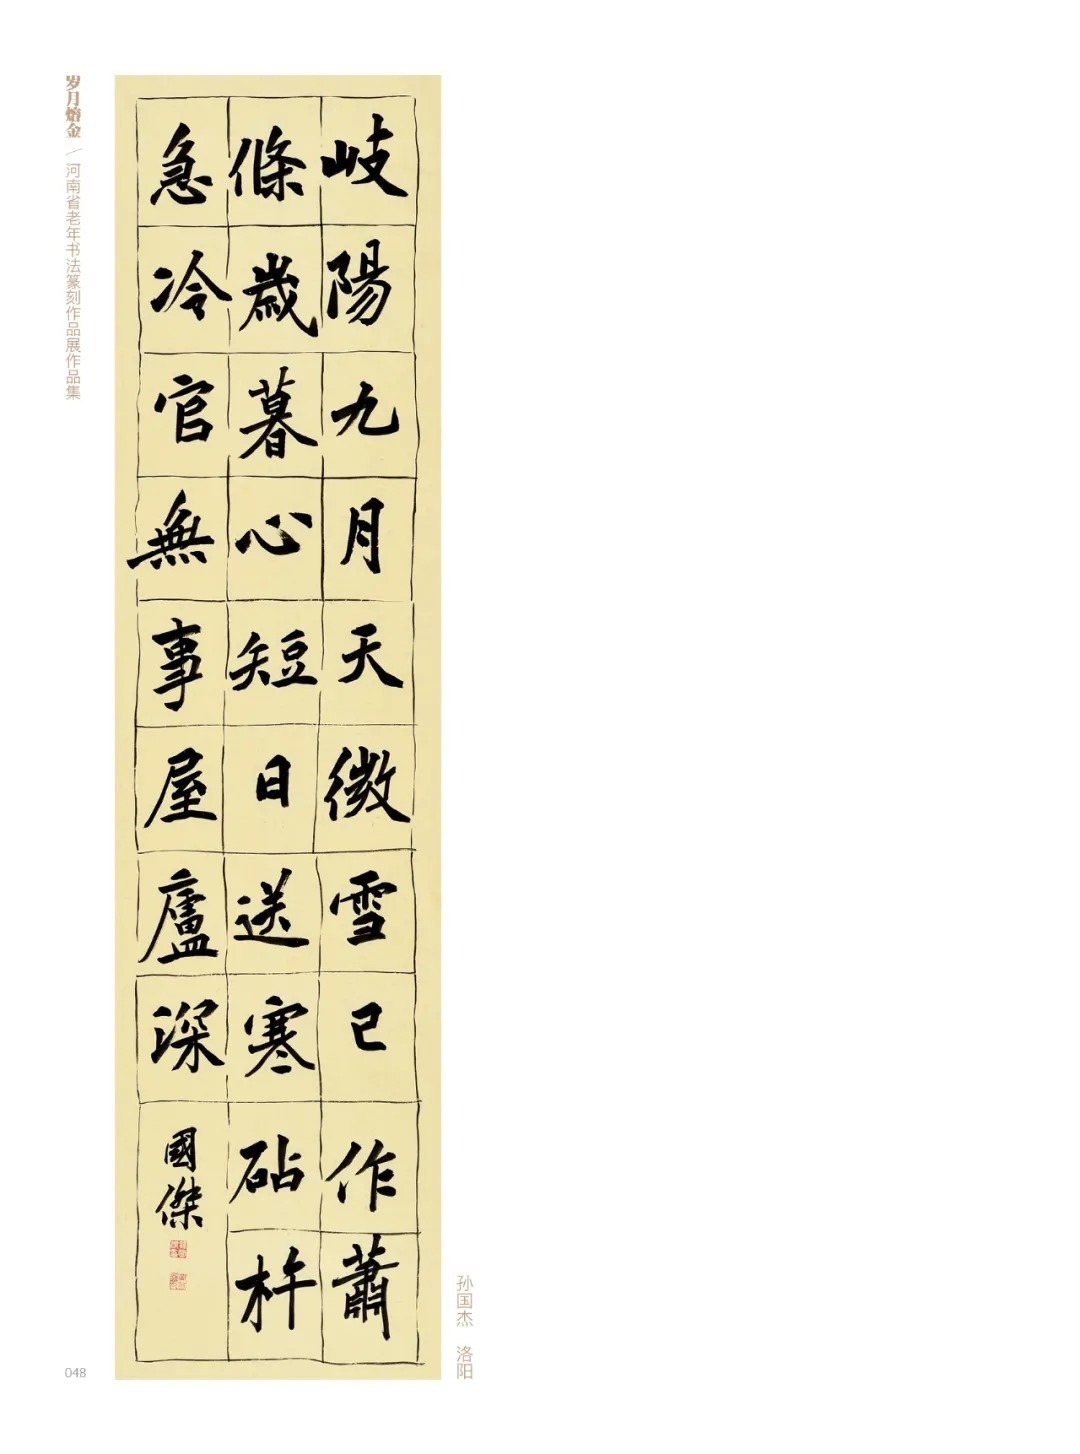 岁月熔金／河南省老年书法篆刻作品展作品集
岐陽九月天微雪已作蕭
條歲暮心短日送寒砧杵
急冷官無事屋廬深
國傑
孙国杰 洛阳
048